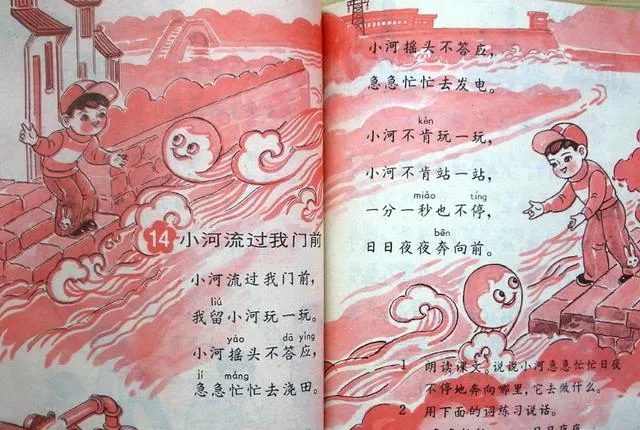 14 小河流过我门前
小河流过我门前，
liú
我留小河玩一玩。
yáo dā yìng
小河摇头不答应，
jí máng
急急忙忙去浇田。
小河摇头不答应，
急急忙忙去发电。
kěn
小河不肯玩一玩，
小河不肯站一站，
miǎo tíng
一分一秒也不停，
bēn
日日夜夜奔向前。
1 朗读课文。说说小河急急忙忙日夜
不停地奔向哪里，它去做什么。
2 用下面的词练习说话。